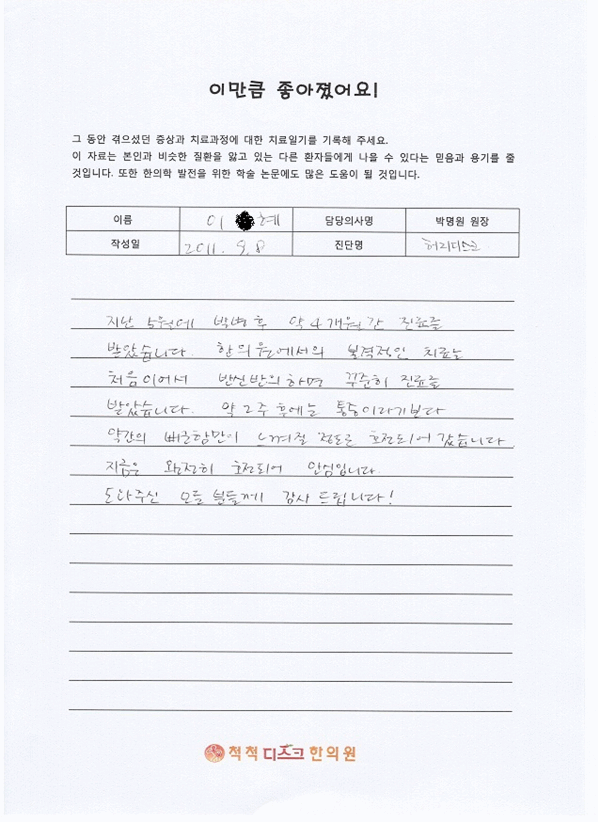 이만큼 좋아졌어요!
그 동안 겪으셨던 증상과 치료과정에 대한 치료일기를 기록해 주세요.
이 자료는 본인과 비슷한 질환을 앓고 있는 다른 환자들에게 나을 수 있다는 믿음과 용기를 줄
것입니다. 또한 한의학 발전을 위한 학술 논문에도 많은 도움이 될 것입니다.
이름 이 혜 담당의사명 박명원 원장
작성일 2011. 9. 8 진단명 허리디스크
지난 5월에 발병 후 약 4개월간 진료를
받았습니다. 한의원에서의 본격적인 치료는
처음이어서 반신반의하며 꾸준히 진료를
받았습니다. 약 2주 후에는 통증이라기보다
약간의 뻐근함만이 느껴질 정도로 호전되어 갔습니다
지금은 완전히 호전되어 안심입니다.
도와주신 모든 분들께 감사 드립니다!
척척 디스크 한의원